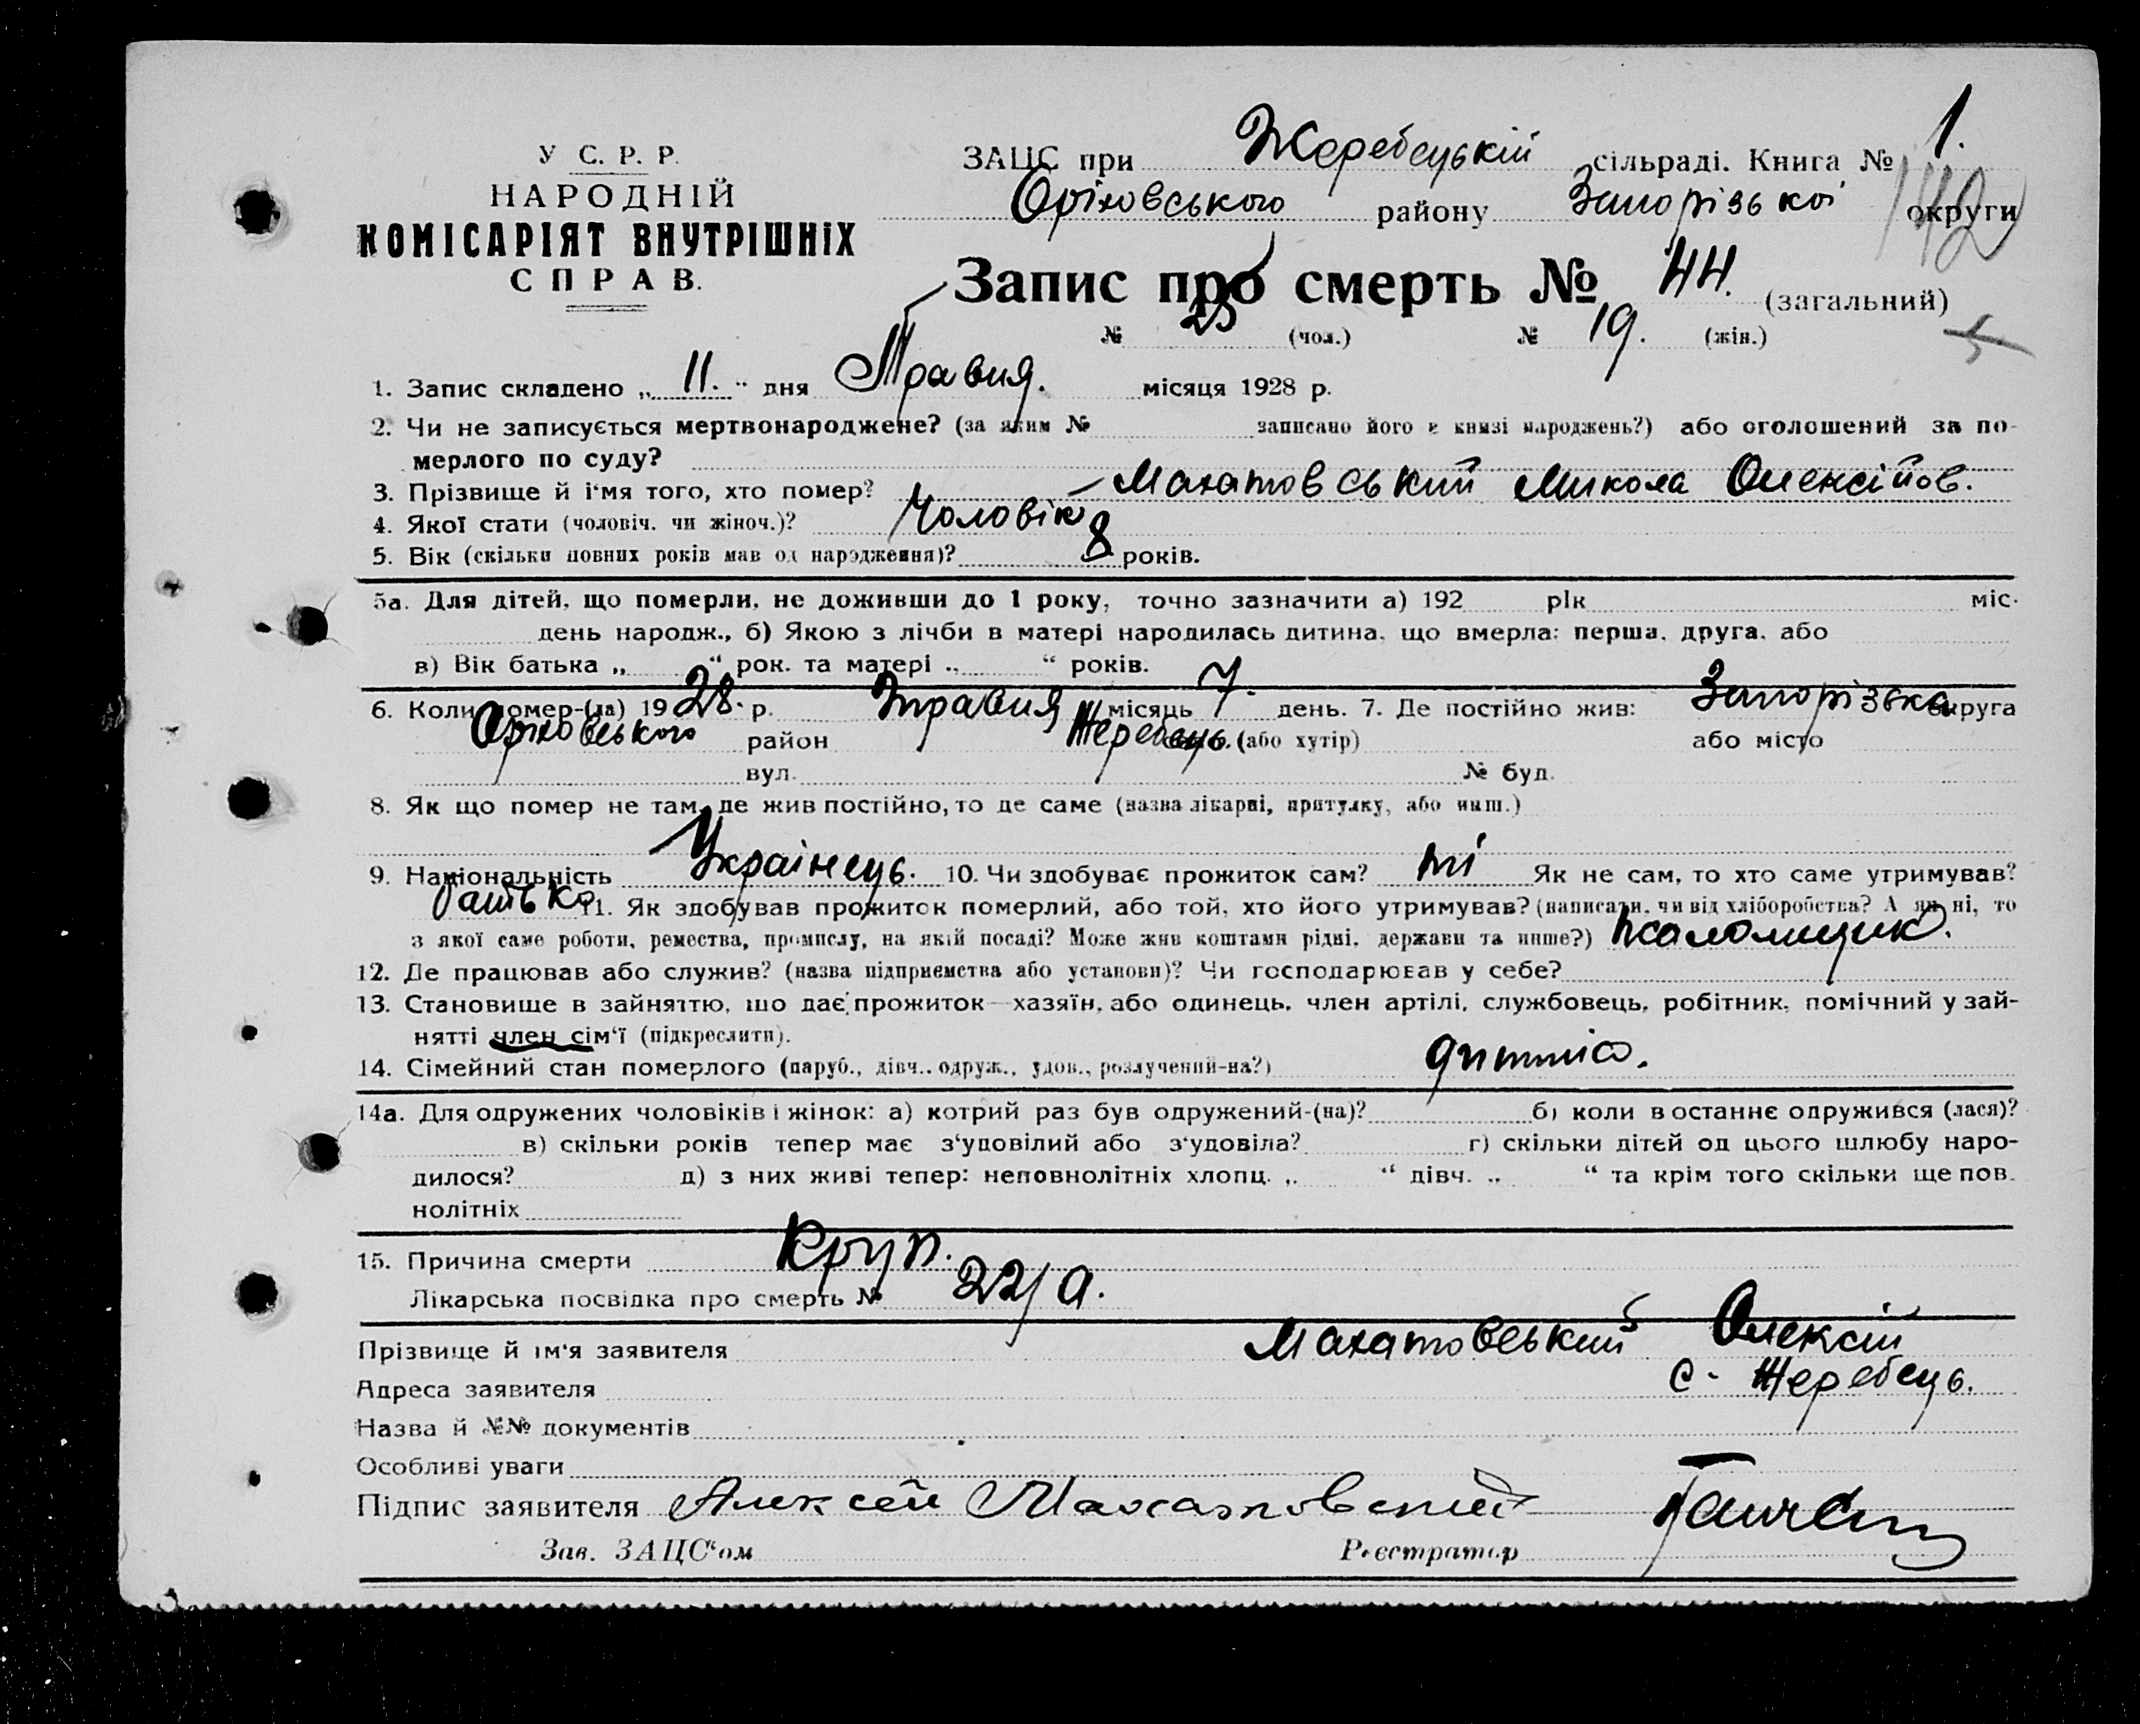 У С. Р. Р.
НАРОДНІЙ
КОМІСАРІЯТ ВНУТРІШНІХ
СПРАВ.
ЗАЦС при Жеребецькій сільраді. Книга № 1.
Оріховського району Запорізької округи
142
Запис про смерть № 44. (загальний)
№ 25 (чол.) № 19. (жін.)
1. Запис складено „ 11. " дня Травня. місяця 1928 р.
2. Чи не записується мертвонароджене? (за яким № записано його в книзі народжень?) або оголошений за по-
мерлого по суду?
3. Прізвище й ім'я того, хто помер? Махатовський Микола Олексійов.
4. Якої стати (чоловіч. чи жіноч.)? Чоловік
5. Вік (скільки повних років мав од народження)? 8 років.
5а. Для дітей, що померли, не доживши до 1 року, точно зазначити а) 192 рік міс.
день народж., б) Якою з лічби в матері народилась дитина, що вмерла: перша, друга, або
в) Вік батька „ “ рок. та матері „ “ років.
6. Коли помер-(ла) 1928. р. травня місяць 7. день. 7. Де постійно жив: Запорізька округа
Оріховського район Жеребець. (або хутір) або місто
вул. № буд.
8. Як що помер не там, де жив постійно, то де саме (назва лікарні, притулку, або инш.)
9. Національність Українець. 10. Чи здобуває прожиток сам? ні Як не сам, то хто саме утримував?
батько 11. Як здобував прожиток померлий, або той, хто його утримував? (написати, чи від хліборобства? А як ні, то
з якої саме роботи, ремества, промислу, на якій посаді? Може жив коштами рідні, держави та инше?) псаломщик.
12. Де працював або служив? (назва підприємства або установи)? Чи господарював у себе?
13. Становище в зайняттю, що дає прожиток—хазяїн, або одинець, член артілі, службовець, робітник, помічний у зай-
нятті член сім'ї (підкреслити).
14. Сімейний стан померлого (паруб., дівч., одруж., удов., розлучений-на?) дитина.
14а. Для одружених чоловіків і жінок: а) котрий раз був одружений-(на)? б) коли в останнє одружився (лася)?
в) скільки років тепер має з'удовілий або з'удовіла? г) скільки дітей од цього шлюбу наро-
дилося? д) з них живі тепер: неповнолітніх хлопц. „ “ дівч. „ “ та крім того скільки ще пов.
нолітніх
15. Причина смерти Круп.
Лікарська посвідка про смерть № 22/а.
Прізвище й ім'я заявителя Махатовський Олексій
Адреса заявителя с. Жеребець.
Назва й №№ документів
Особливі уваги
Підпис заявителя Алексей Махатовский
Зав. ЗАЦС'ом Реєстратор